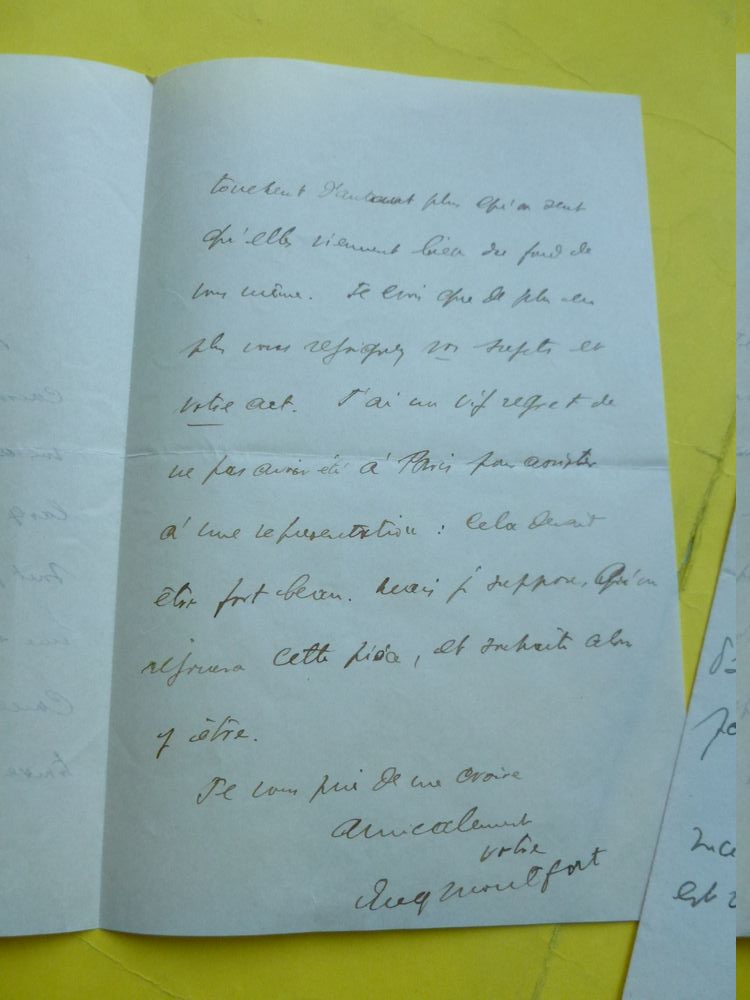 touchent d'autant plus qu'on sent
qu'elles viennent bien du fond de
vous même. Je crois que de plus en
plus vous rejoignez vos sujets et
votre art. J'ai un vif regret de
ne pas avoir été à Paris pour assister
à une représentation : cela devait
être fort beau. Mais je suppose, qu'on
rejouera cette pièce, et souhaite alors
y être.
Je vous prie de me croire
amicalement
votre
Eug Montfort